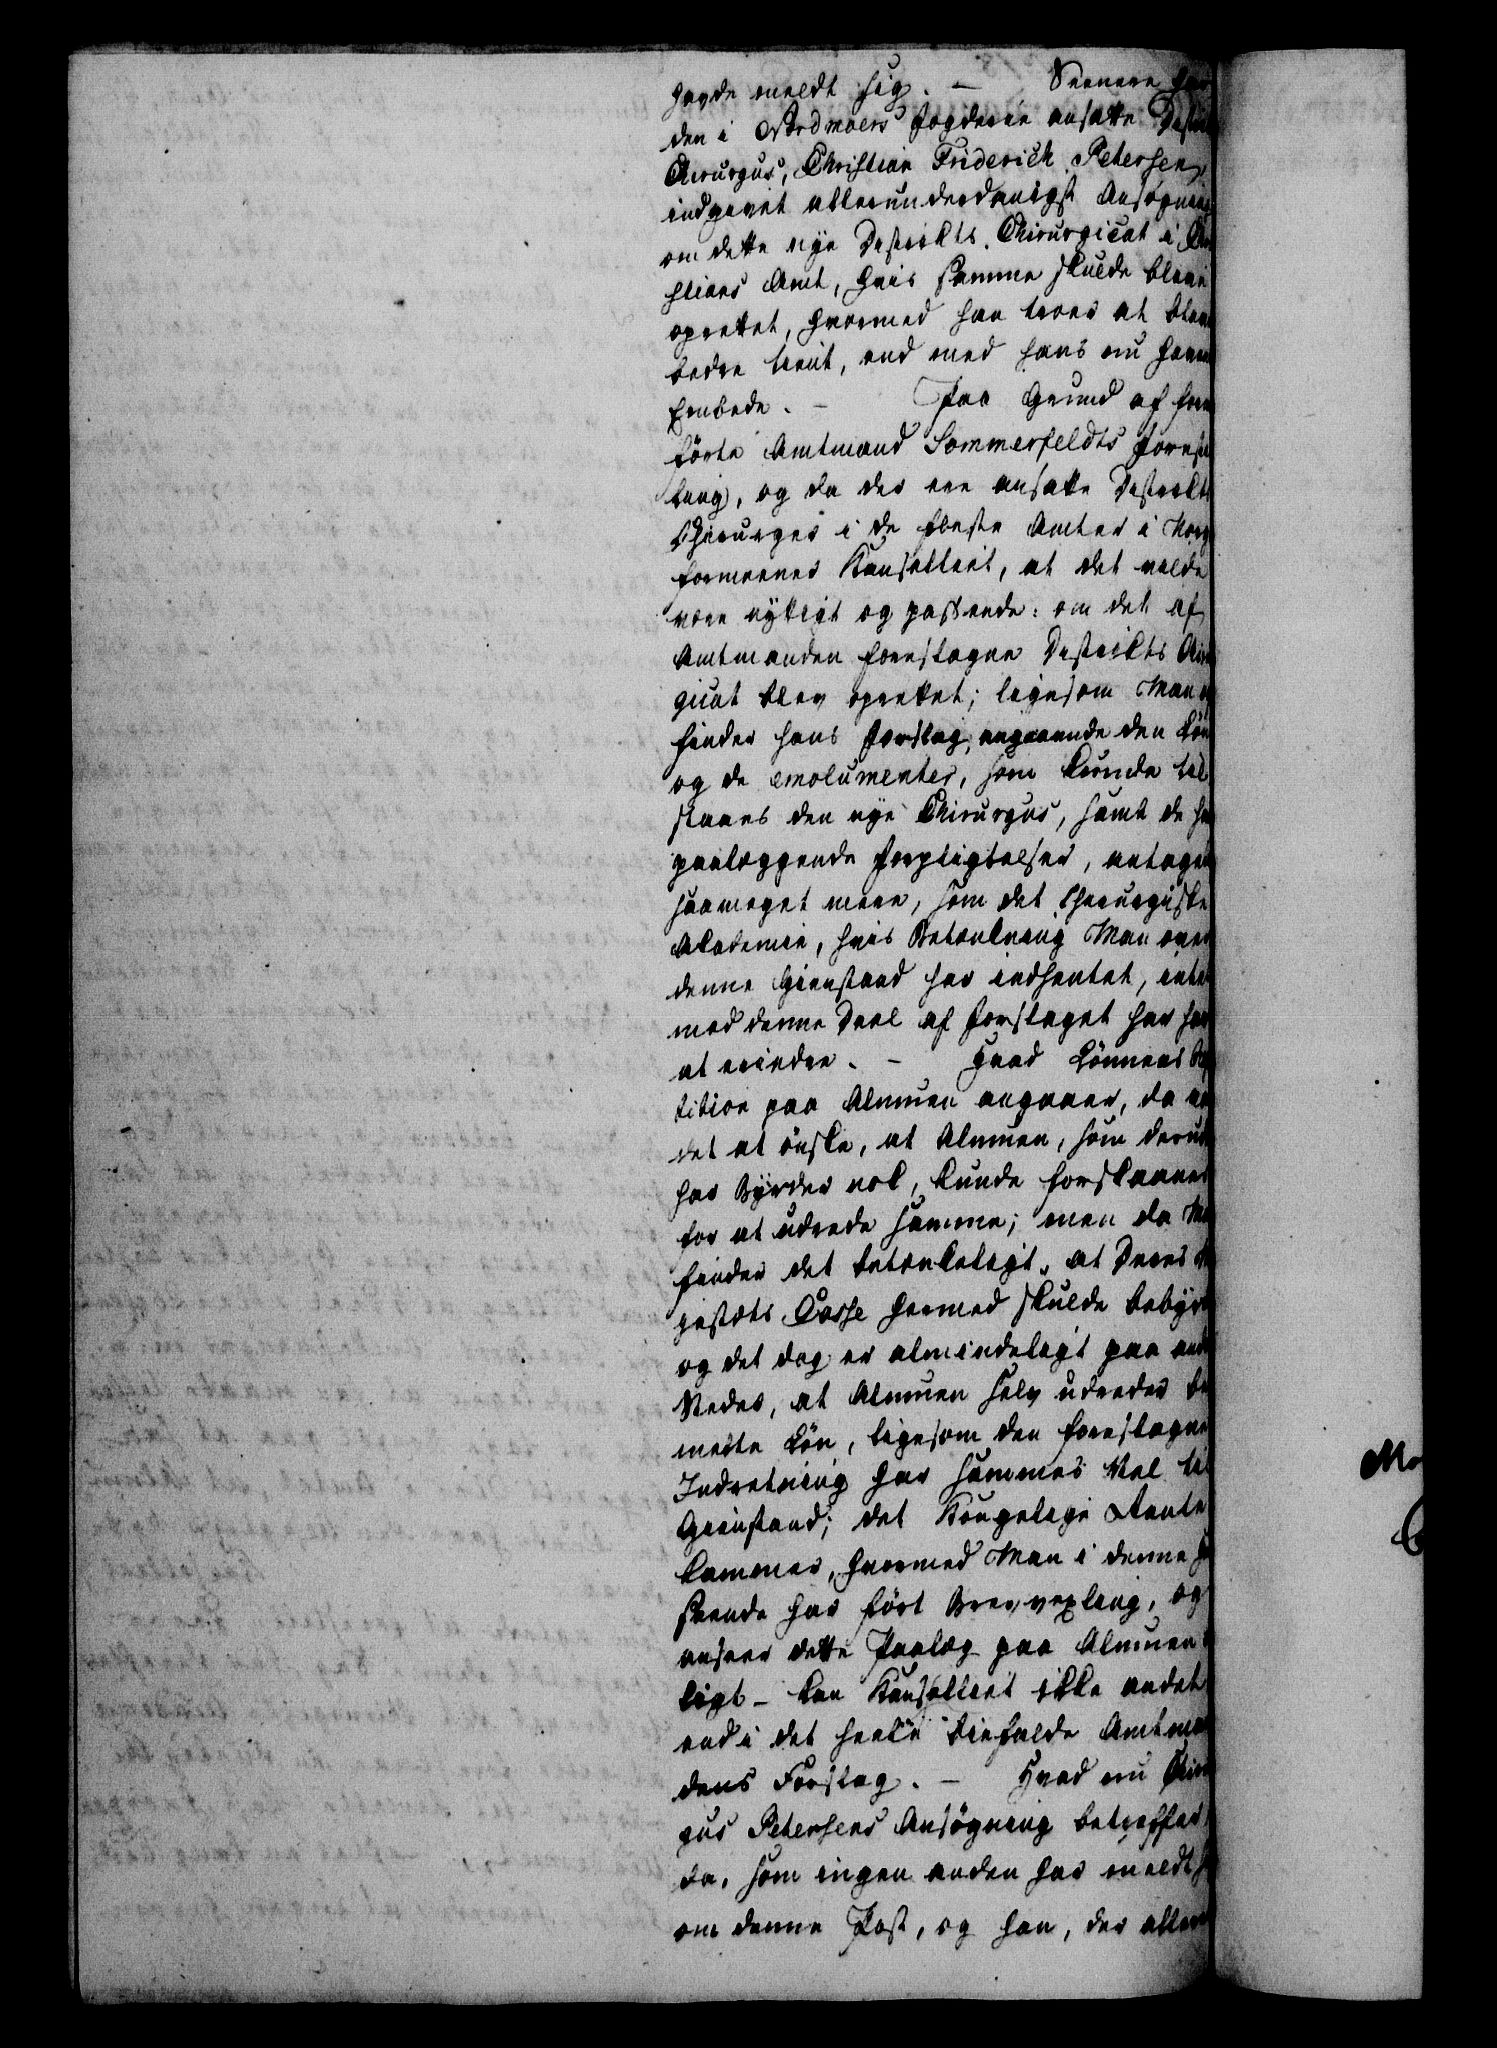 havde meldt sig. — Seenere har
den i Nordmoers Fogderie ansatte Distr
Chirurgus, Christian Friderich Petersen,
indgivet allerunderdanigst Ansøgning
om dette nye Districts Chirurgicat i Chri
stians Amt, hvis samme skulde blive
oprettet, hvormed han troer at blive
bedre tient, end med hans nu havende
Embede. — Paa Grund af foran
førte Amtmand Sommerfeldts Forestil
ling, og da der ere ansatte Districts
Chirurger i de fleste Amter i Norge
formeener Kancelliet, at det vilde
være nyttigt og passende: om det af
Amtmanden foreslagne Districts Chirur
gicat blev oprettet; ligesom Man og
finder hans Forslag, angaaende den Løn
og de emolumenter, som kunde til
staaes den nye Chirurgus, samt de ham
paalæggende Forpligtelser, antageligt
saameget mere, som det chirurgiske
Academie, hvis Betænkning Man over
denne Gienstand har indhentet, intet
mod denne Deel af Forslaget har havt
at erindre. — Hvad Lønnens Repar
tition paa Almuen angaaer, da var
det at ønske, at Almuen, som desuden
har Byrder nok, kunde forskaanes
for at udrede samme; men da Man
finder det betænkeligt, at Deres Ma
jestæts Casse hermed skulde bebyrdes
og det dog er almindeligt paa andre
Steder, at Almuen selv udreder be
meldte Løn, ligesom den foreslagne
Indretning har sammes Vel til
Gienstand; det Kongelige Rente
kammer, hvormed Man i denne Hen
seende har ført Brevvexling, og
anseer dette Paalæg paa Almuen
ligt — kan Kancelliet ikke andet
end i det heele biefalde Amtman
dens Forslag. — Hvad nu Chirur
gus Petersens Ansøgning betreffer,
da, som ingen anden har meldt sig
om denne Post, og han, der allere